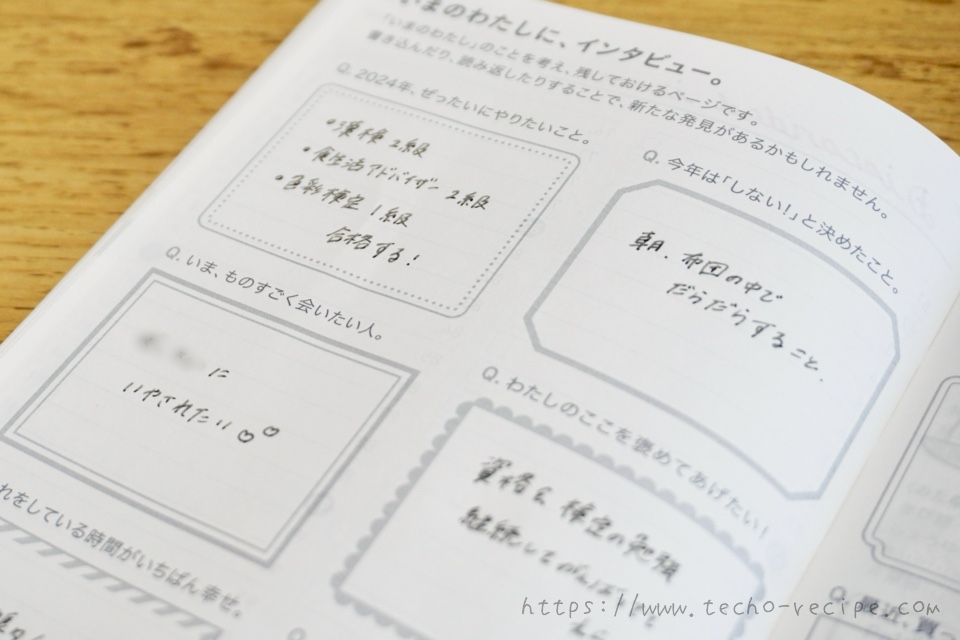 いまのわたしに、インタビュー。
「いまのわたし」のことを考え、残しておけるページです。
書き込んだり、読み返したりすることで、新たな発見があるかもしれません。
Q. 2024年、ぜったいにやりたいこと。
・漢検2級
・食生活アドバイザー2級
・色彩検定1級
合格する!
Q. 今年は「しない!」と決めたこと。
朝、布団の中で
だらだらすること。
Q. いま、ものすごく会いたい人。
に
いやされたい♡♡
Q. わたしのここを褒めてあげたい!
資格&検定の勉強
継続してがんば
れをしている時間がいちばん幸せ。
Q. 最近、買っ
https://www.techo-recipe.com